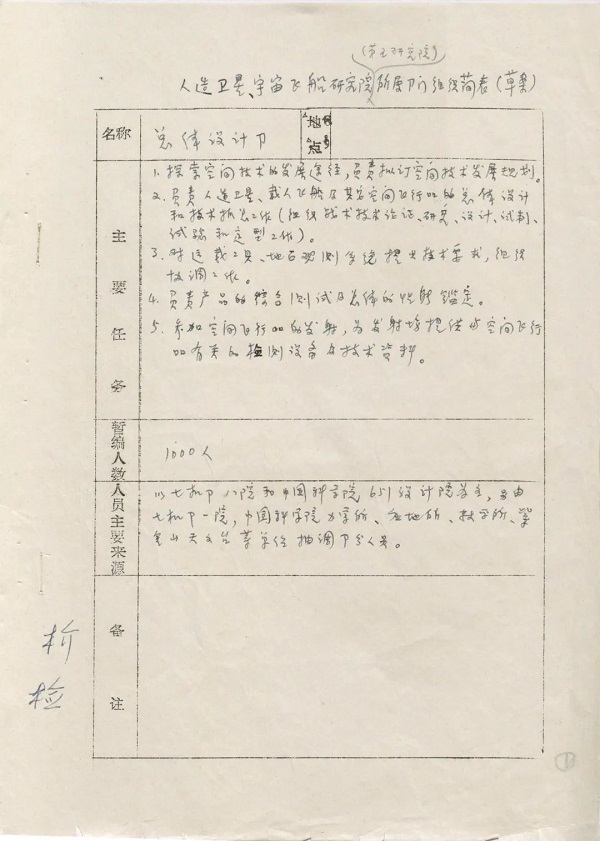 (第五研究院)
人造卫星、宇宙飞船研究院所属卩门组织简表(草案)
名称 总体设计卩 地点 代号
主要任务
1. 探索空间技术的发展途径,负责拟订空间技术发展规划。
2. 负责人造卫星、载人飞船及其它空间飞行口的总体设计
和技术抓总工作(组织战术技术论证、研究、设计、试制、
试验和定型工作)。
3. 对运载工具、地面观测系统提出技术要求,组织
协调工作。
4. 负责产品的综合测试及总体的性能鉴定。
5. 参加空间飞行口的发射,为发射场提供与空间飞行
口有关的检测设备与技术资料。
暂编人数 1000人
人员主要来源
以七机卩八院和中国科学院651设计院为主,另由
七机卩一院,中国科学院力学所、数学所、紫
金山天文台等单位抽调卩分人员。
备注
检
①